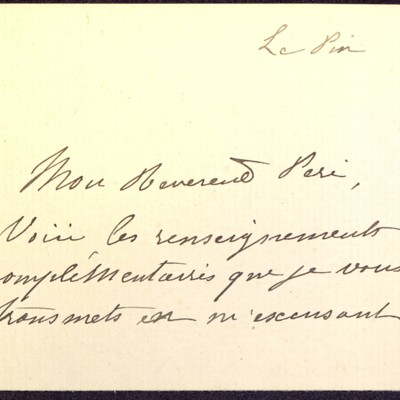 Le Pin
Mon Reverend Pere,
Voici les renseignements
complémentaires que je vous
transmets en m'excusant